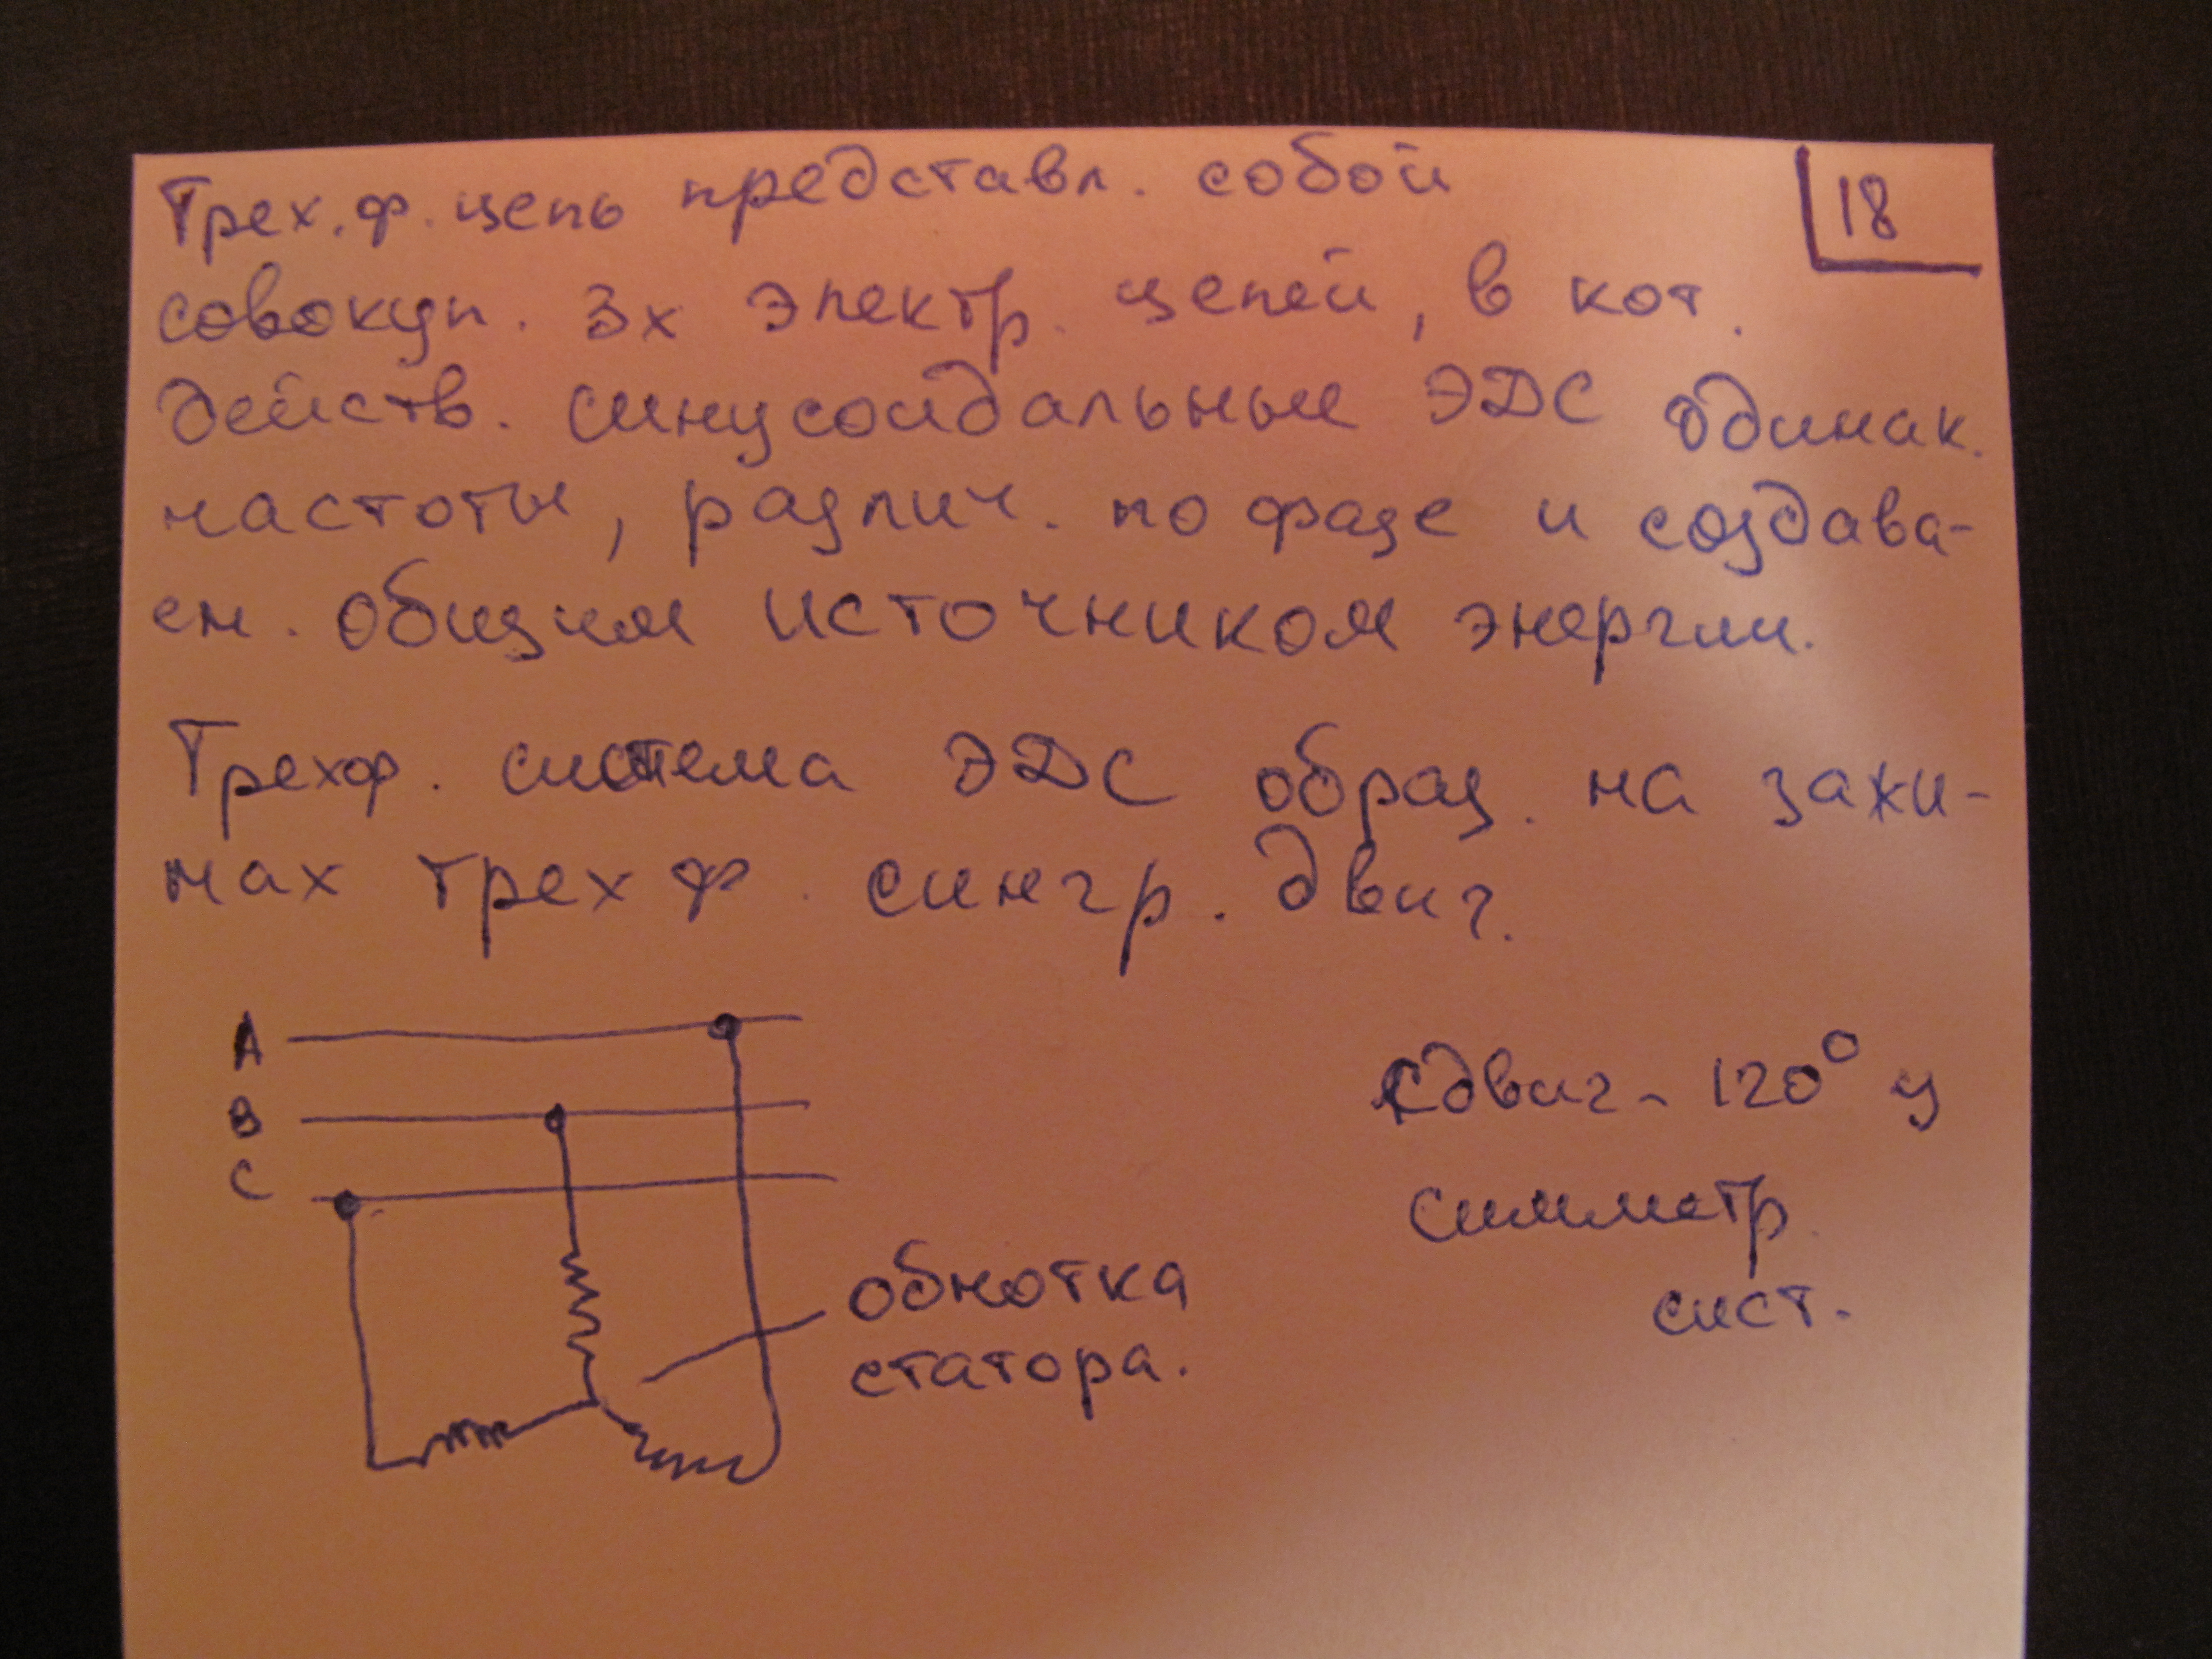 Трех.ф. цепь представл. собой
18
совокуп. 3х электр. цепей, в кот.
действ. синусоидальные ЭДС одинак.
частоты, различ. по фазе и создава-
ем. общим источником энергии.
Трехф. система ЭДС образ. на зажи-
мах трехф. сингр. двиг.
A
B
C
Сдвиг - 120° у
симметр.
сист.
обмотка
статора.